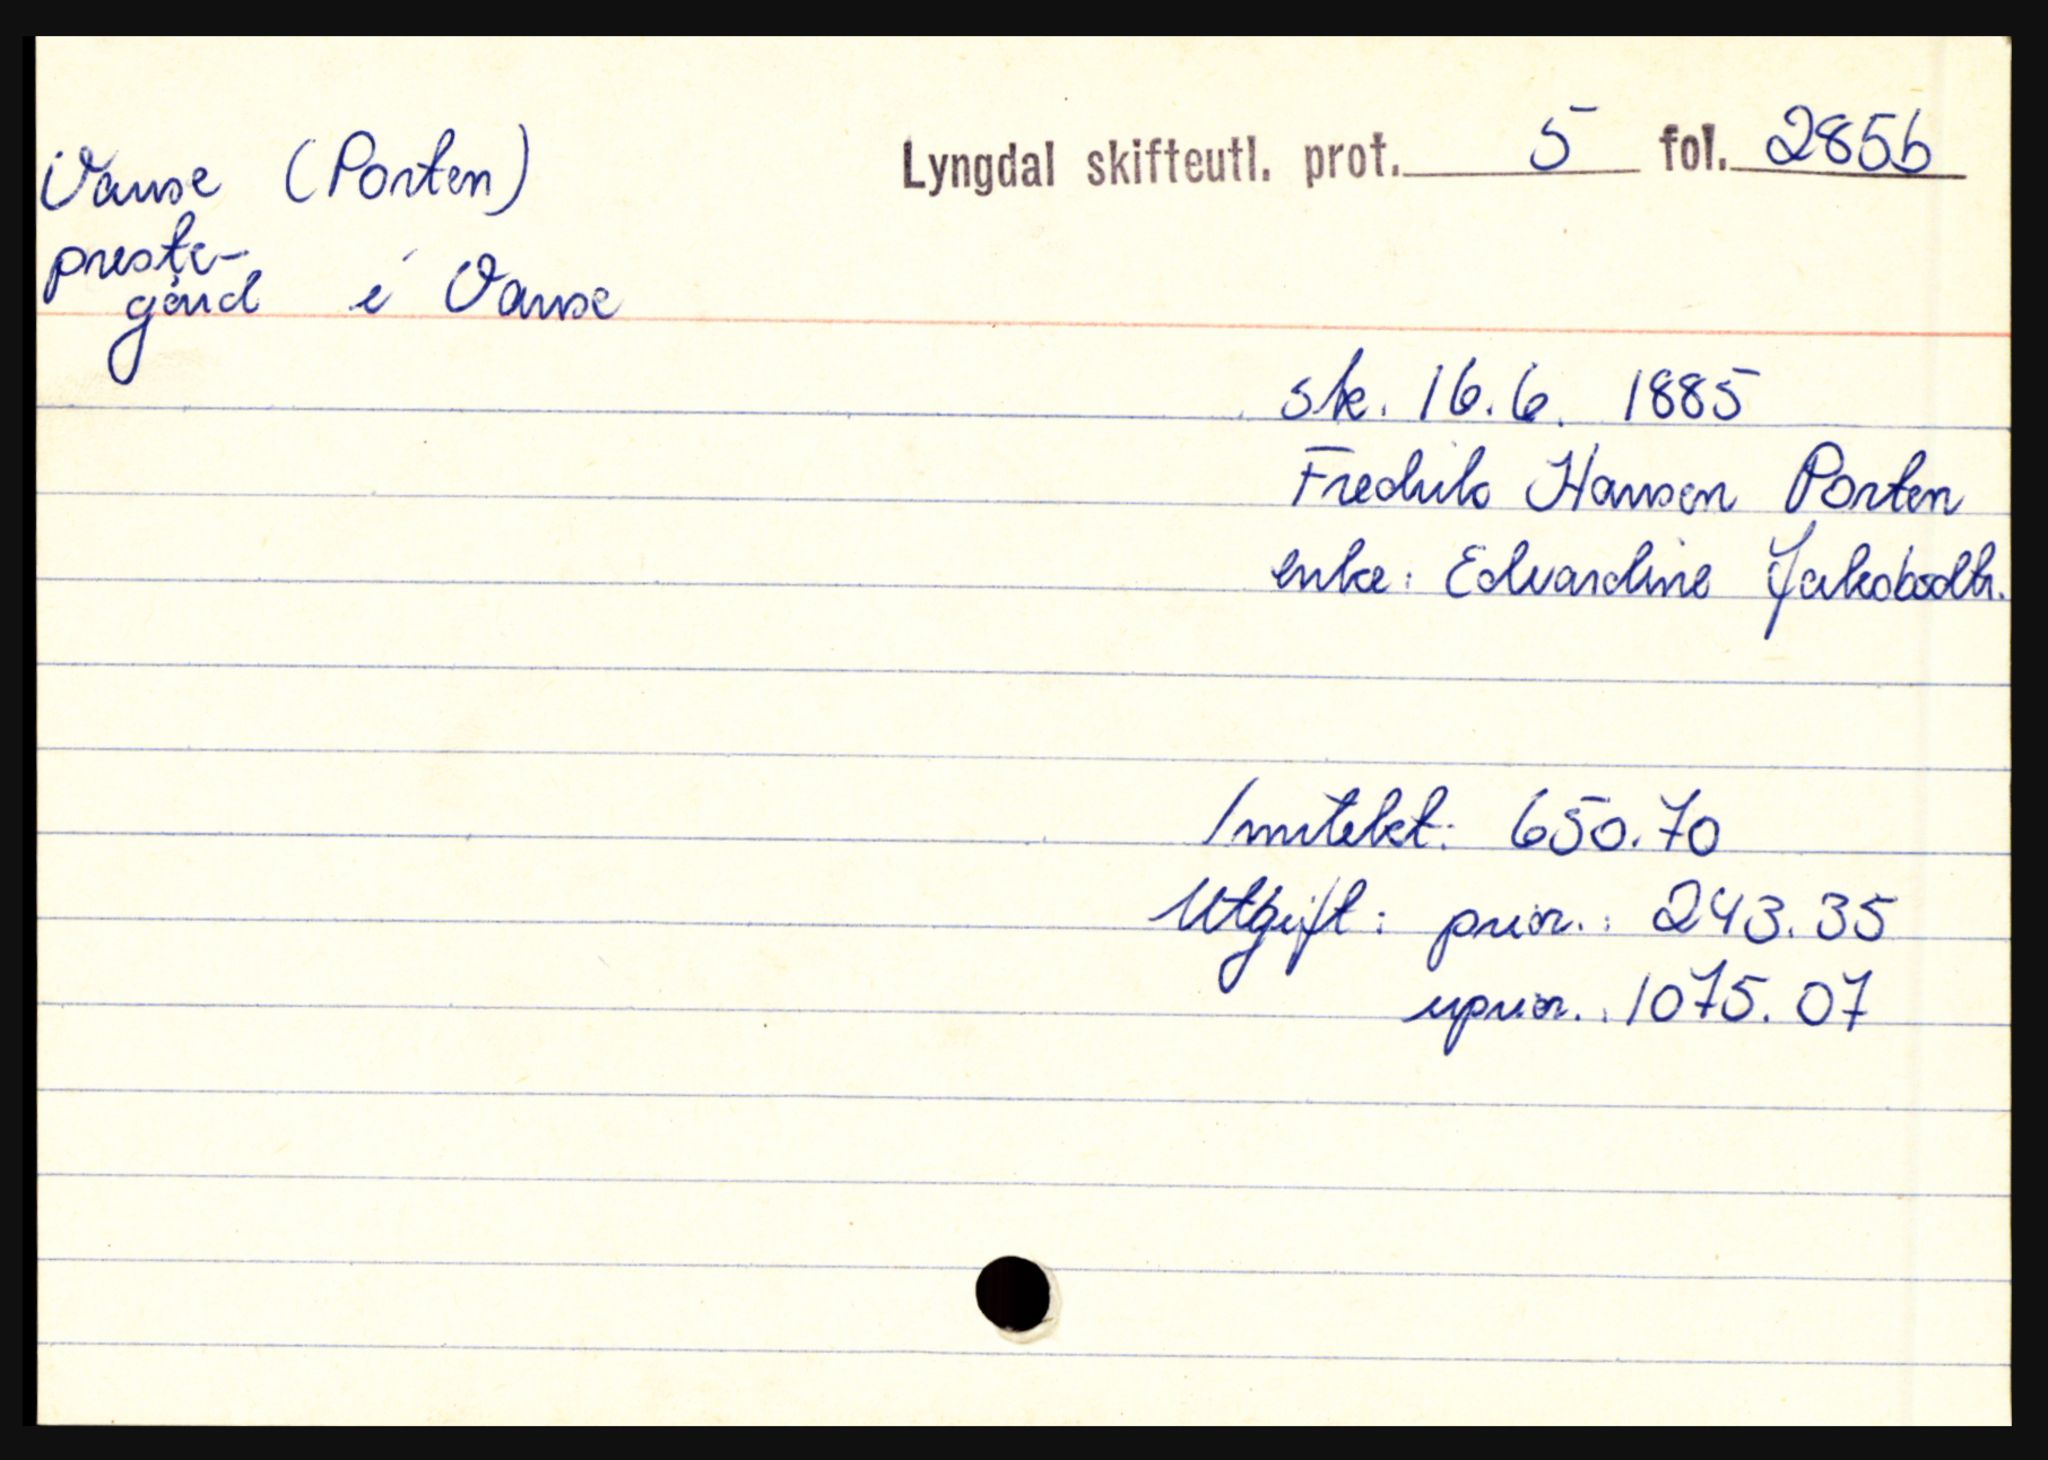 Vanse (Porten)
Lyngdal skifteutl. prot. 5 fol. 285b
preste-
gård i Vanse
sk. 16.6. 1885
Fredrik Hansen Porten
enke: Edvardine Jakobsdtr.
Inntekt: 650.70
Utgift: prior.: 243.35
uprior.: 1075.07